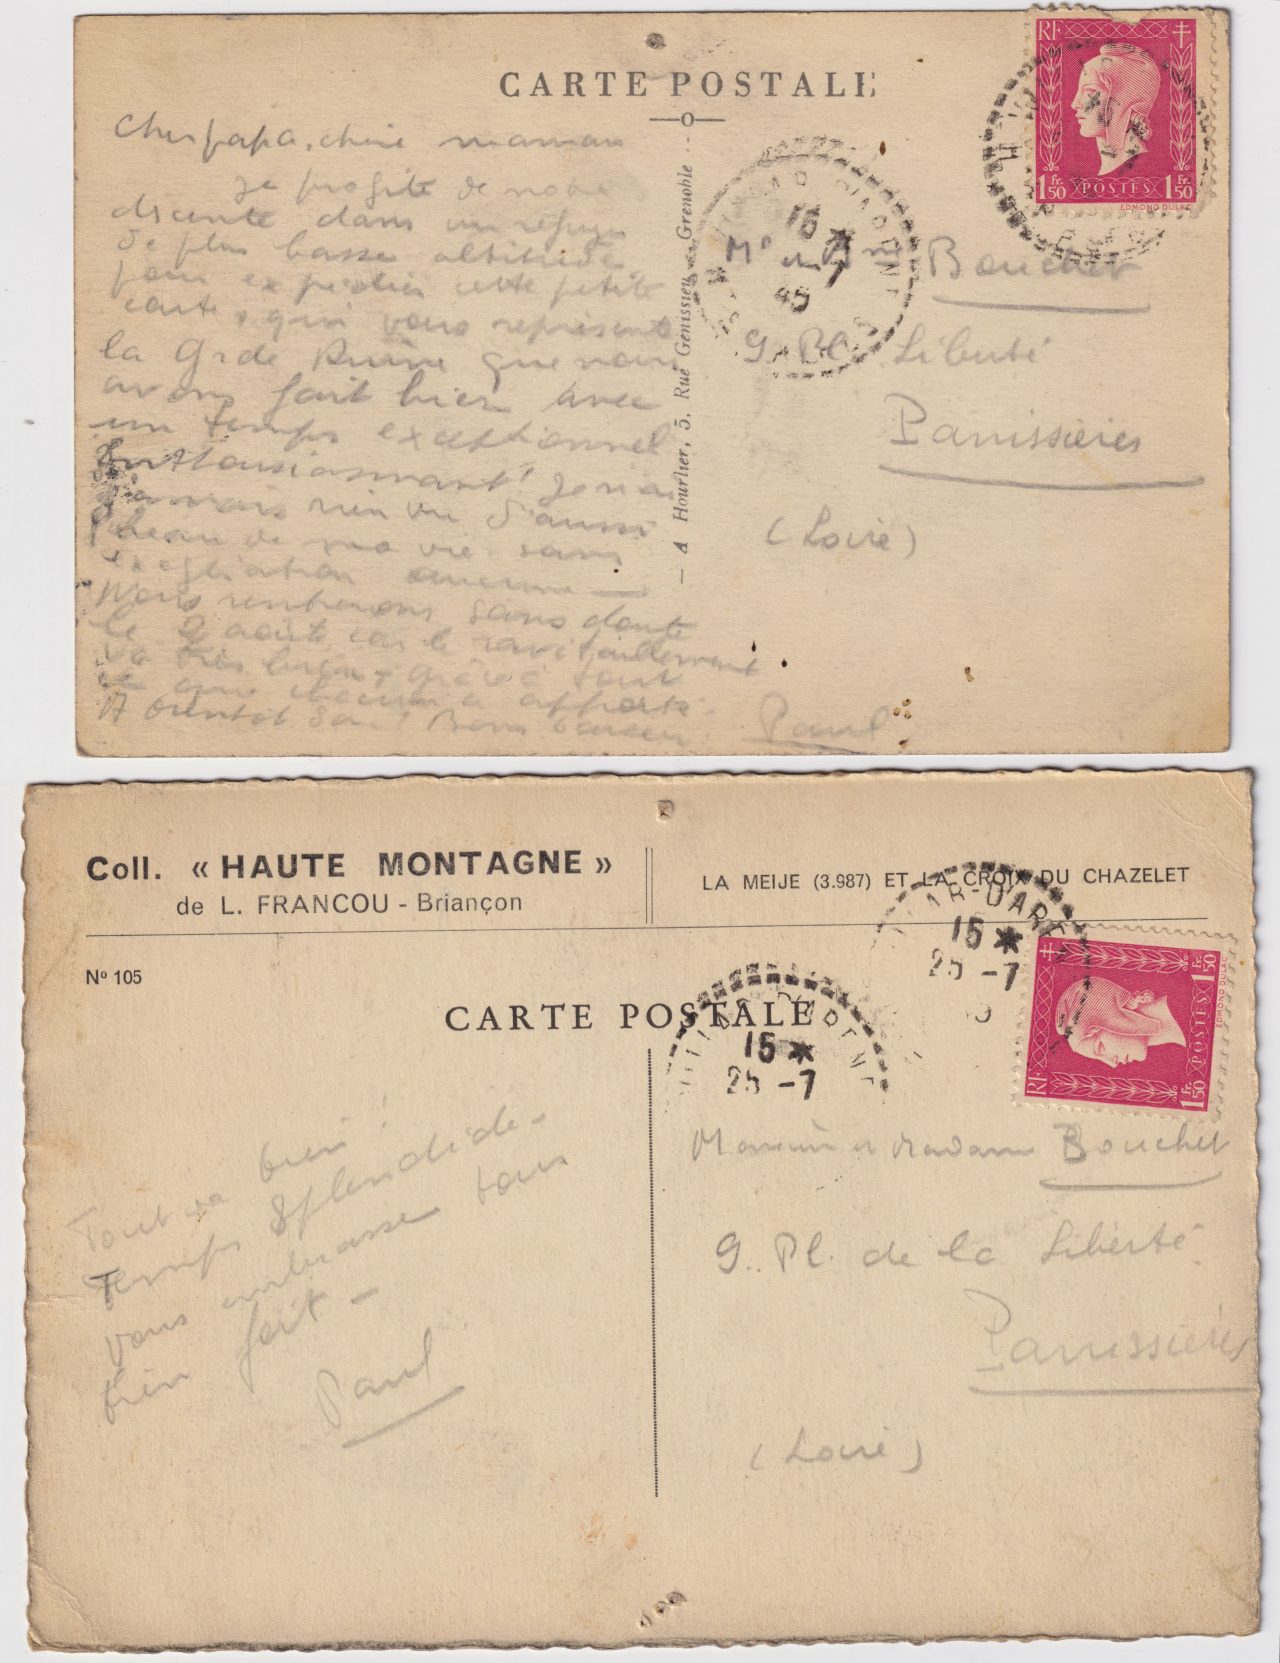 CARTE POSTALE
RF
1 Fr. 50 POSTES 1 Fr. 50
EDMOND DULAC
Cher papa, chère maman
je profite de notre
descente dans un refuge
de plus basse altitude
pour expédier cette petite
carte, qui vous représente
la Grde Ruine que nous
avons fait hier avec
un temps exceptionnel
Enthousiasmant! Je n'ai
jamais rien vu d'aussi
beau de ma vie sans
exagération aucune
Nous rentrerons sans doute
le 2 août, car le ravitaillement
va très bien, grâce à tout
ce que chacun a apporté.
A bientôt donc! Bons baisers
Paul
A Hourlier, 5, Rue Génissieu — Grenoble
15 *
7
45
Mr et Mme Boucher
9. Pl. Liberté
Panissières
(Loire)
Coll. « HAUTE MONTAGNE »
de L. FRANCOU - Briançon
LA MEIJE (3.987) ET LA CROIX DU CHAZELET
No 105
CARTE POSTALE
15 *
25 -7
15 *
25 -7
RF
1 Fr. 50 POSTES 1 Fr. 50
EDMOND DULAC
Tout va bien!
Temps splendide-
Vous embrasse tous
bien fort -
Paul
Monsieur et Madame Bouchet
9. Pl. de la Liberté
Panissières
(Loire)